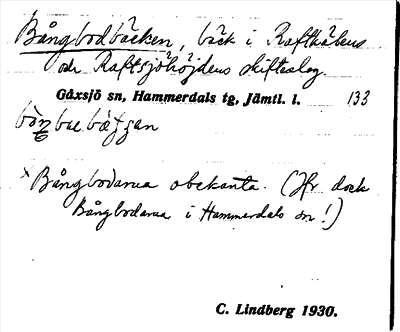 Bångbodbäcken, bäck i Rafthåbens
och Raftsjöhöjdens skifteslag.
Gåxsjö sn, Hammerdals tg, Jämtl. l. 133
x Bångbodarna obekanta. (Jfr dock
Bångbodarna i Hammerdals sn!)
C. Lindberg 1930.